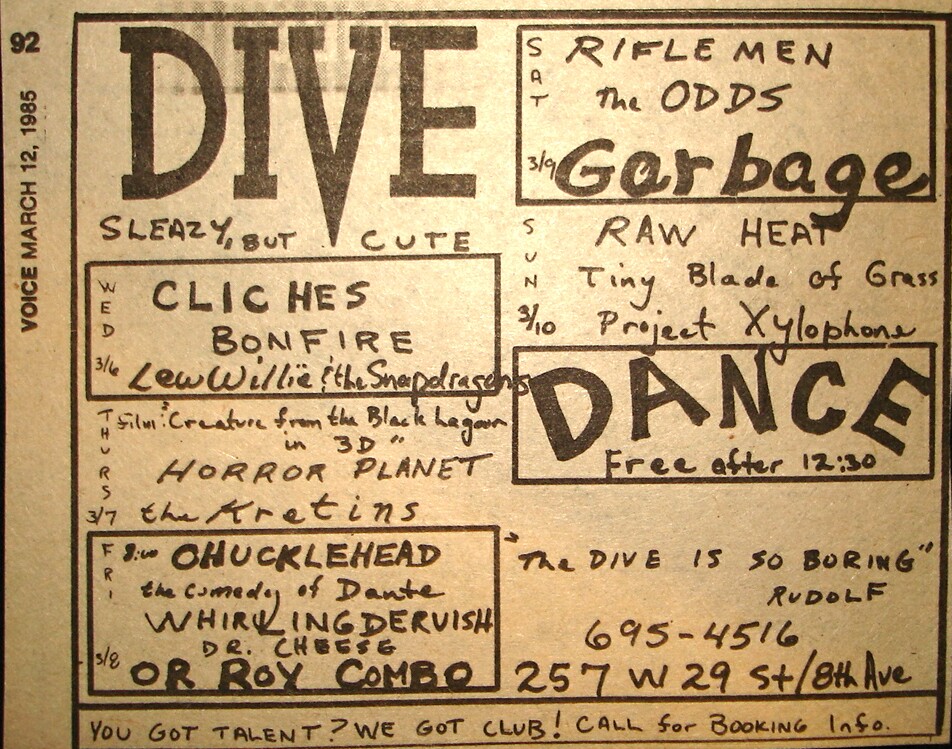 92
VOICE MARCH 12, 1985
DIVE
SLEAZY, BUT CUTE
WED 3/6
CLICHES
BONFIRE
Lew Willie & the Snapdragons
THURS 3/7
film: "Creature from the Black Lagoon
in 3D"
HORROR PLANET
the Kretins
FRI 3/8
8:00 CHUCKLEHEAD
the comedy of Dante
WHIRLING DERVISH
DR. CHEESE
OR ROY COMBO
SAT 3/9
RIFLEMEN
The ODDS
Garbage
SUN 3/10
RAW HEAT
Tiny Blade of Grass
Project Xylophone
DANCE
Free after 12:30
"The DIVE IS SO BORING"
RUDOLF
695-4516
257 W 29 St/8th Ave
YOU GOT TALENT? WE GOT CLUB! CALL for BOOKING Info.